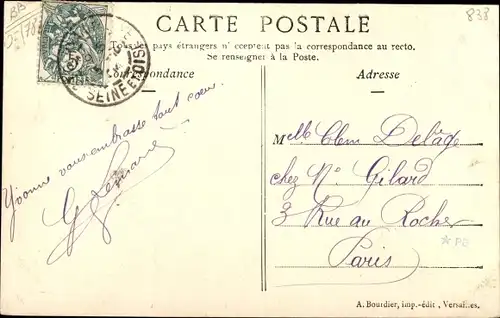 CARTE POSTALE
833
Tous les pays étrangers n'acceptent pas la correspondance au recto.
Se renseigner à la Poste.
Correspondance
Adresse
SEINE ET OISE
Yvonne vous embrasse tout coeur
G
Melle Clem Delâge
chez Mr Gilard
3 Rue du Rocher
Paris
* PE
A. Bourdier, imp.-édit, Versailles.